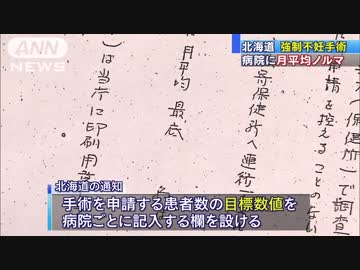 ANN
NEWS
北海道 強制不妊手術
病院に月平均ノルマ
申請を控えることのない
保健所へ運
月平均 最底
は当庁に印刷用
北海道の通知
手術を申請する患者数の目標数値を
病院ごとに記入する欄を設ける